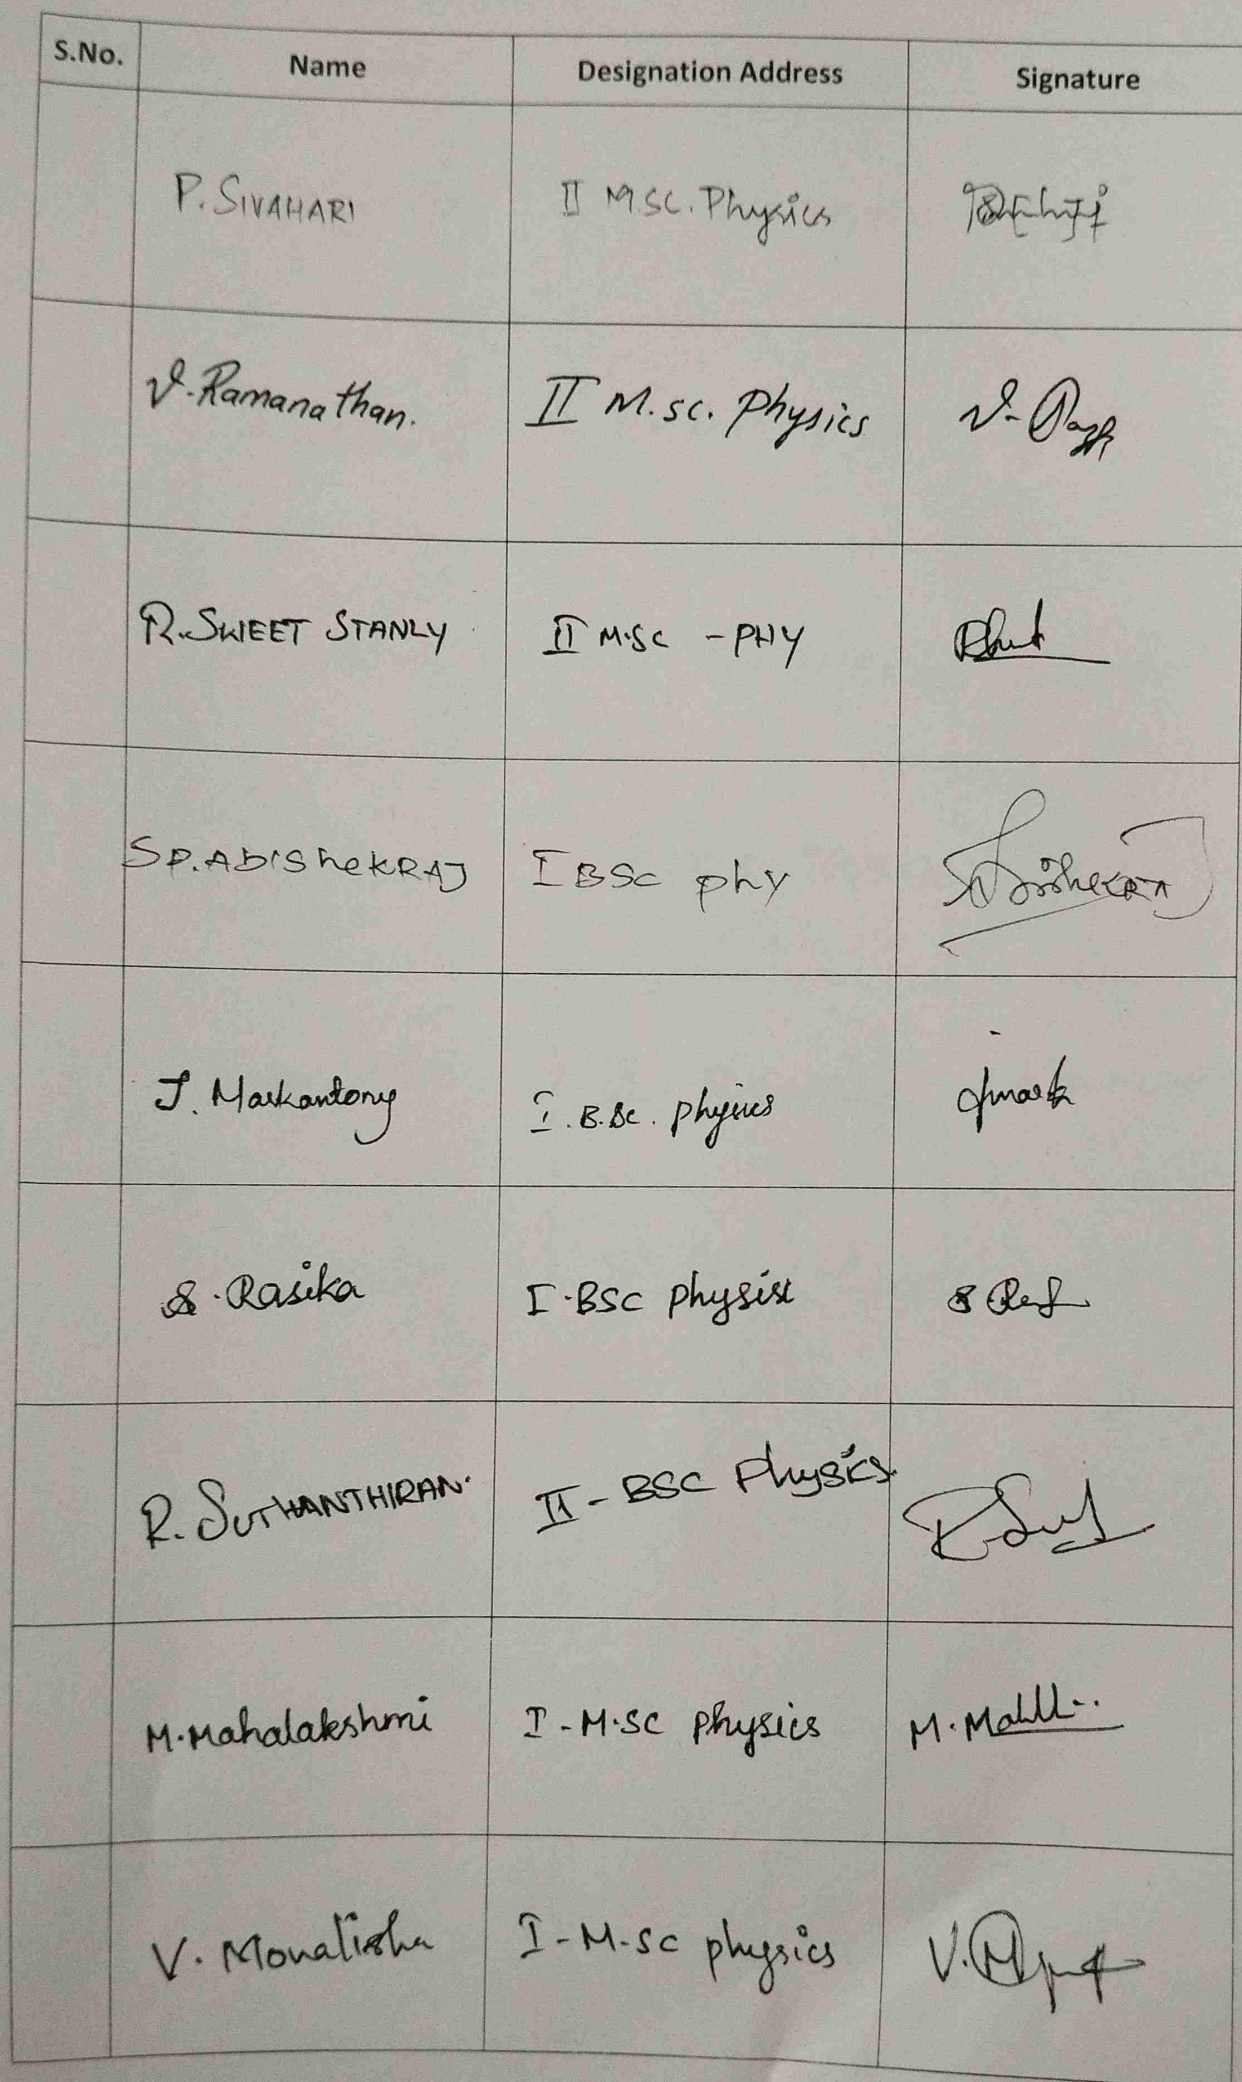 S.No. Name Designation Address Signature
P. SIVAHARI II M.SC. Physics
V. Ramanathan. II M.sc. Physics V.
R. SWEET STANLY II M.SC - PHY
SP. AbishekRAJ I BSc phy
J. Markantony I. B.Sc. physics Jmark
S. Rasika I. BSC physist S
R. SUTHANTHIRAN. II - BSC Physics. R. Sut
M. Mahalakshmi I - M.SC physics M.
V. Monalisha I - M.SC physics V.